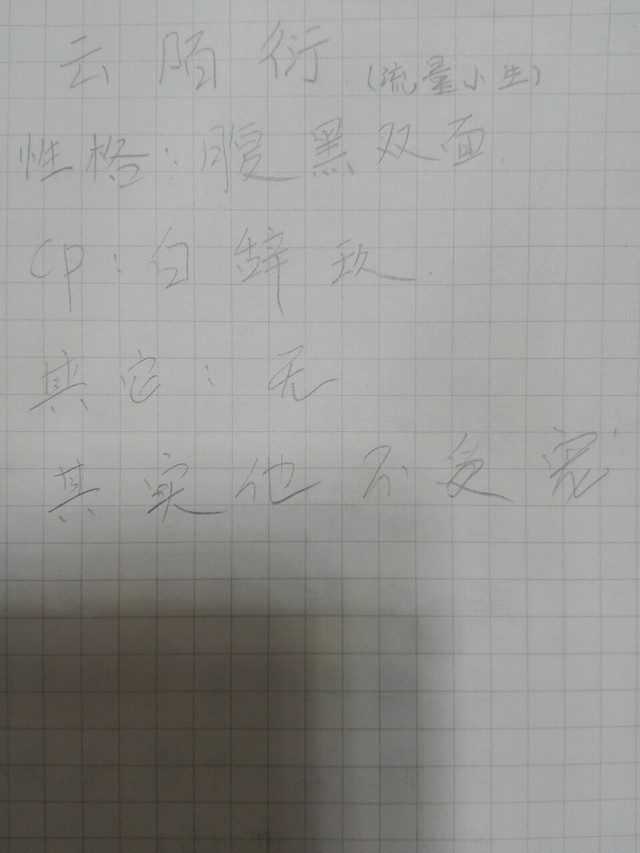 云陌衍(流量小生)
性格:腹黑双面.
CP:白辞玖.
其它:无
其实他不受宠